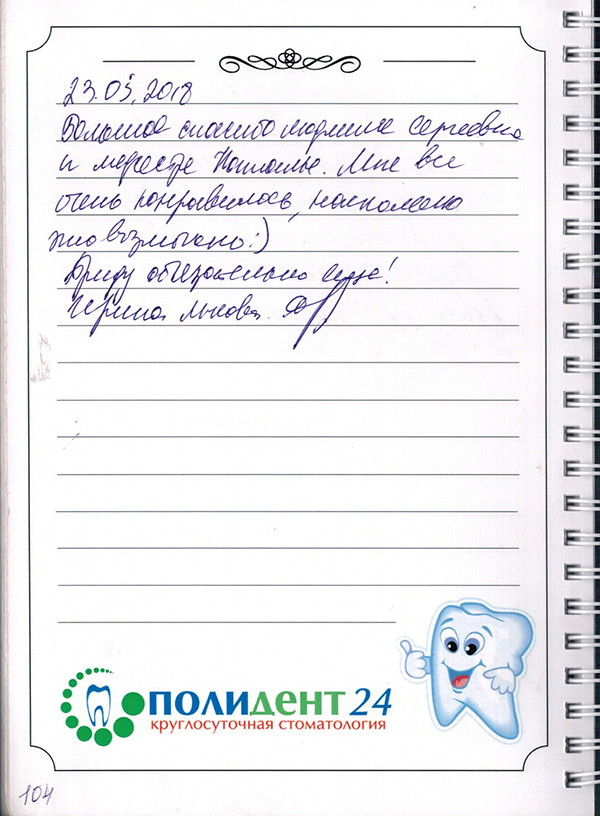 23.05.2018
Большое спасибо Людмиле Сергеевне
и медсестре Наталье. Мне все
очень понравилось, насколько
это возможно :)
Приду обязательно еще!
Ирина
ПОЛИДЕНТ 24
круглосуточная стоматология
104